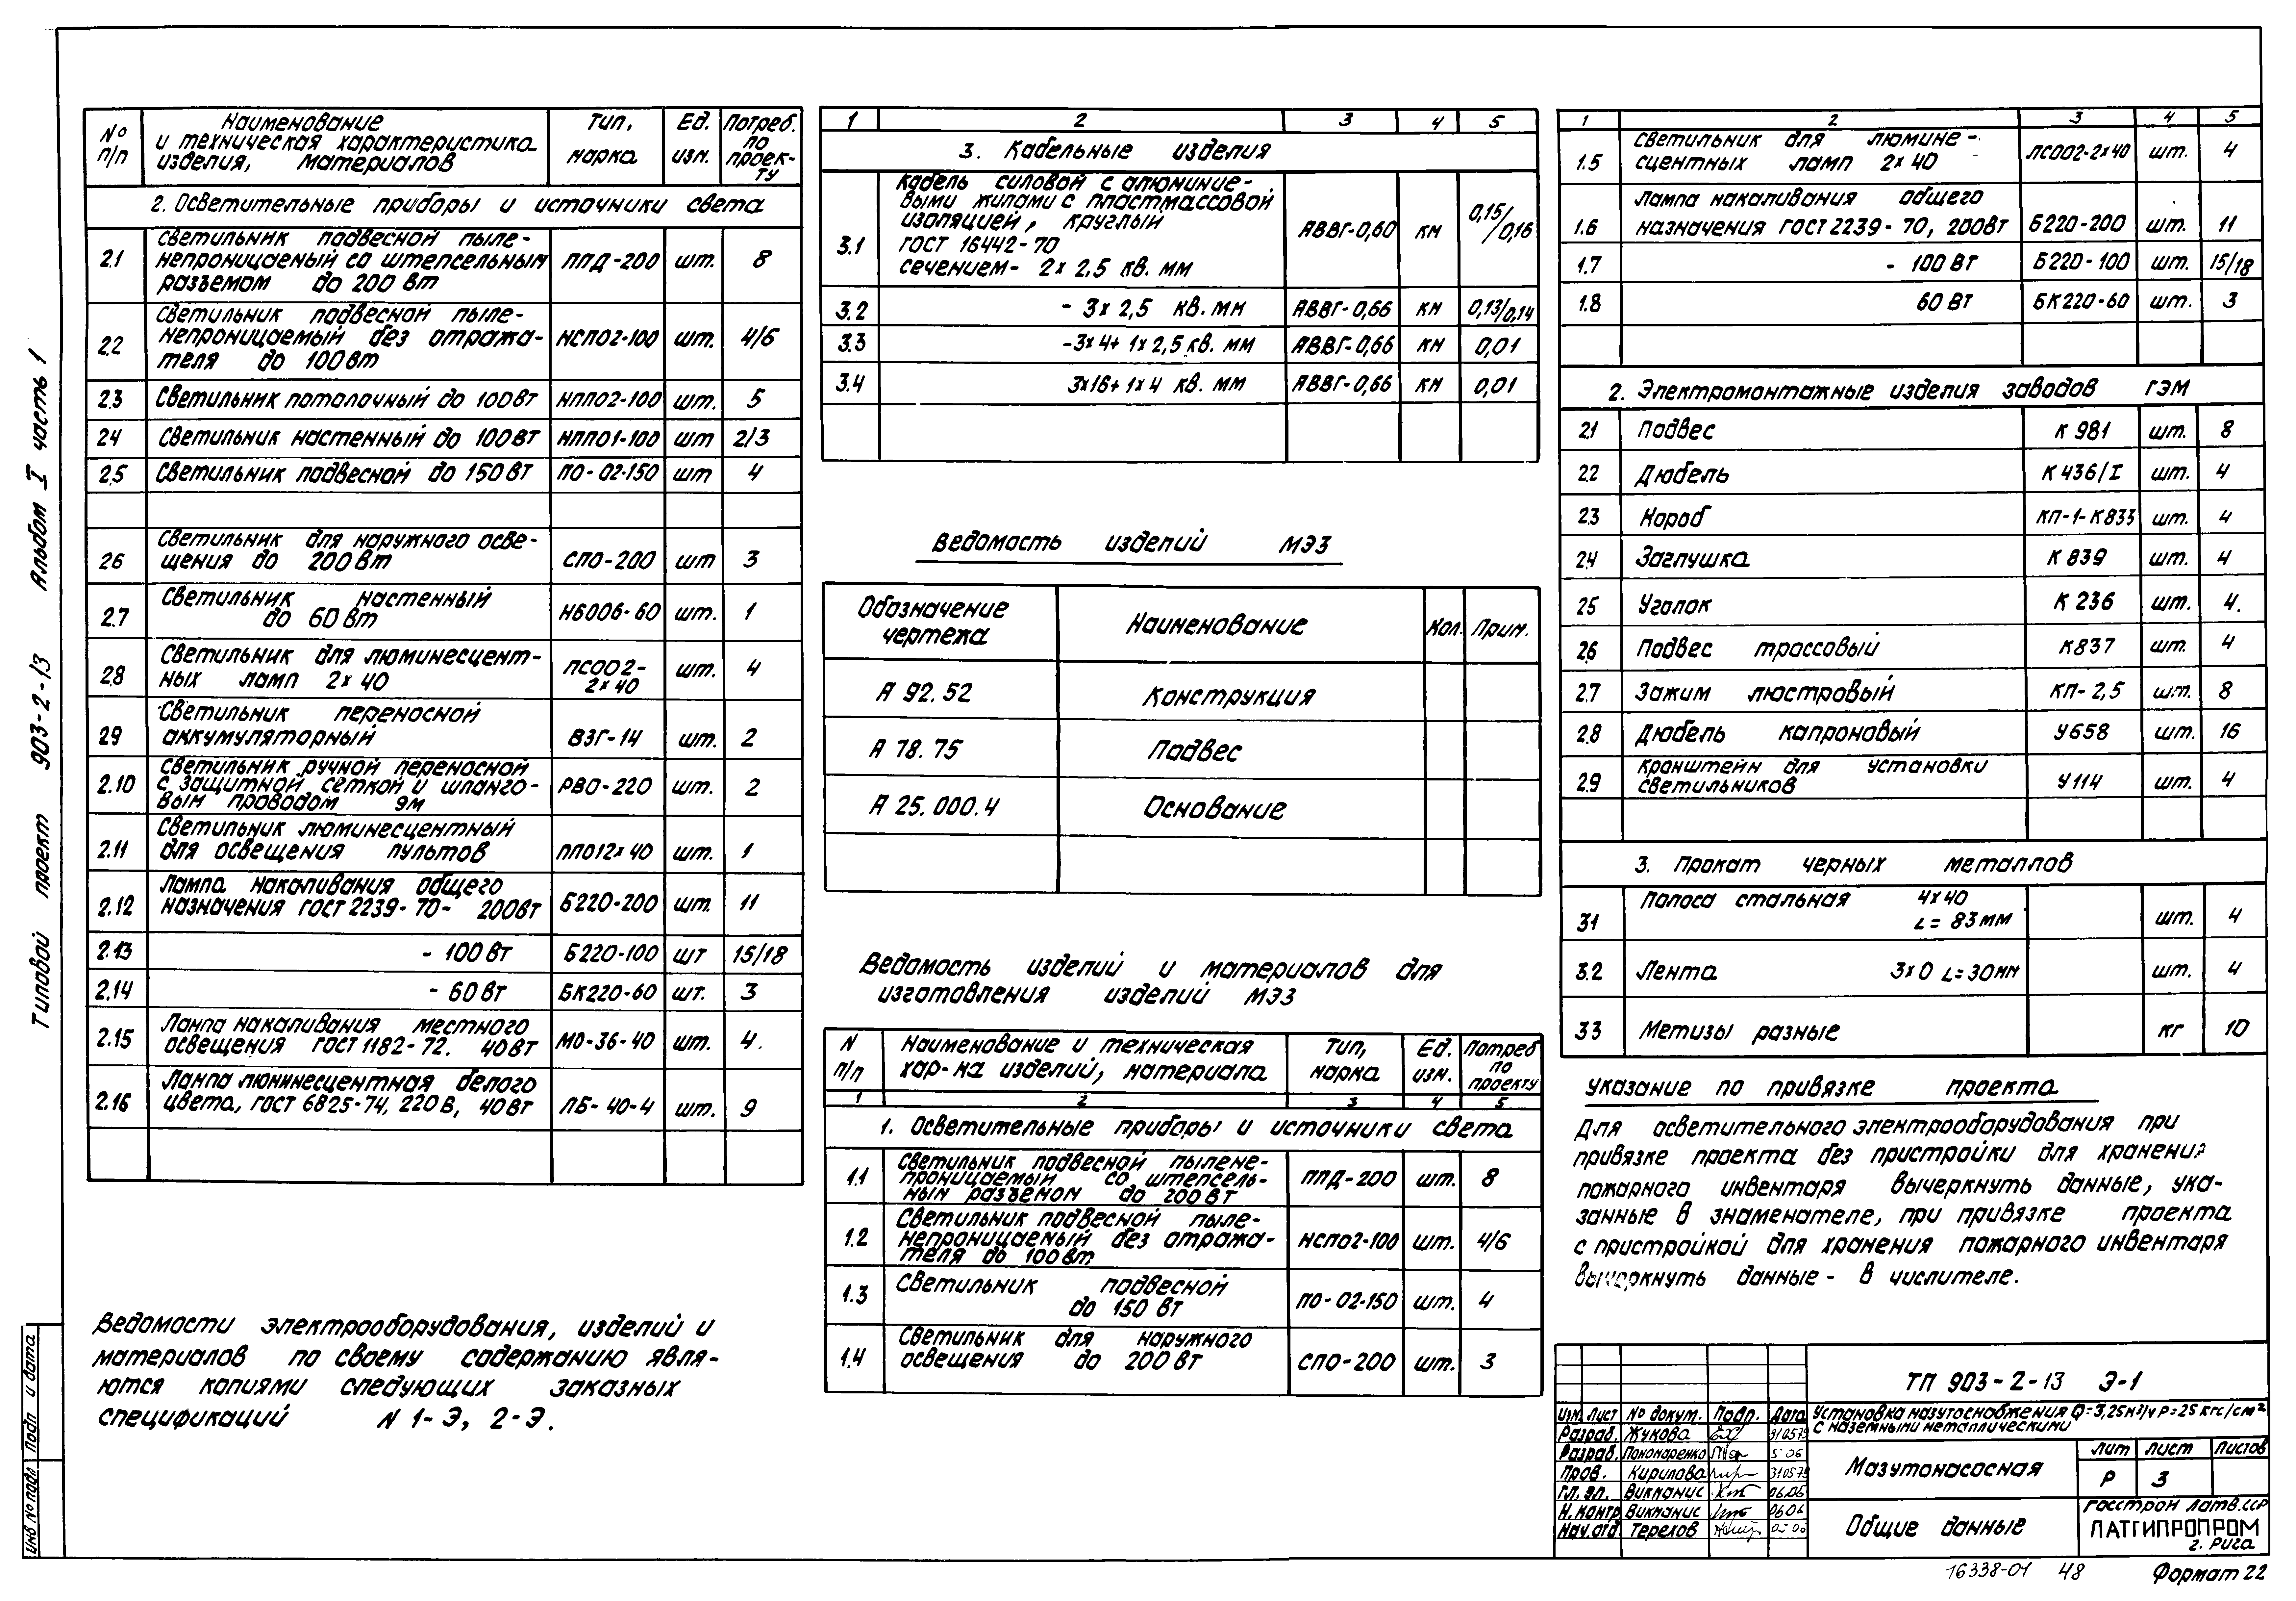 Типовой проект 903-2-13 Альбом I часть 1
№ п/п
Наименование и техническая характеристика изделия, материалов
Тип, марка
Ед. изм.
Потреб. по проекту
2. Осветительные приборы и источники света
2.1 Светильник подвесной пыле-
непроницаемый со штепсельным ППД-200 шт. 8
разъемом до 200 Вт
2.2 Светильник подвесной пыле-
непроницаемый без отража- НСП02-100 шт. 4/6
теля до 100 Вт
2.3 Светильник потолочный до 100 Вт НПП02-100 шт. 5
2.4 Светильник настенный до 100 Вт НПП01-100 шт 2/3
2.5 Светильник подвесной до 150 Вт ПО-02-150 шт 4
2.6 Светильник для наружного осве-
щения до 200 Вт СПО-200 шт 3
2.7 Светильник настенный
до 60 Вт НБ006-60 шт. 1
2.8 Светильник для люминесцент-
ных ламп 2х40 ЛСО02-2х40 шт. 4
2.9 Светильник переносной
аккумуляторный ВЗГ-14 шт. 2
2.10 Светильник ручной переносной
с защитной сеткой и шланго- РВО-220 шт. 2
вым проводом 9м
2.11 Светильник люминесцентный
для освещения пультов ЛП012х40 шт. 1
2.12 Лампа накаливания общего
назначения ГОСТ 2239-70- 200Вт Б220-200 шт. 11
2.13 - 100 Вт Б220-100 шт 15/18
2.14 - 60 Вт БК220-60 шт. 3
2.15 Лампа накаливания местного
освещения ГОСТ 1182-72. 40Вт МО-36-40 шт. 4.
2.16 Лампа люминесцентная белого
цвета, ГОСТ 6825-74, 220 В, 40 Вт ЛБ-40-4 шт. 9
Ведомости электрооборудования, изделий и
материалов по своему содержанию явля-
ются копиями следующих заказных
спецификаций N 1-Э, 2-Э.
1 2 3 4 5
3. Кабельные изделия
3.1 Кабель силовой с алюминие-
выми жилами с пластмассовой
изоляцией, круглый АВВГ-0,60 км 0,15/0,16
ГОСТ 16442-70
сечением- 2х2,5 кв. мм
3.2 - 3х2,5 кв. мм АВВГ-0,66 км 0,13/0,14
3.3 -3х4+1х2,5 кв. мм АВВГ-0,66 км 0,01
3.4 3х16+1х4 кв. мм АВВГ-0,66 км 0,01
Ведомость изделий МЭЗ
Обозначение чертежа
Наименование
Кол.
Прим.
А 92.52 Конструкция
А 78.75 Подвес
А 25.000.4 Основание
Ведомость изделий и материалов для
изготовления изделий МЭЗ
N п/п
Наименование и техническая хар-ка изделий, материала
Тип, марка
Ед. изм.
Потреб по проекту
1 2 3 4 5
1. Осветительные приборы и источники света
1.1 Светильник подвесной пылене-
проницаемый со штепсель- ППД-200 шт. 8
ным разъемом до 200 Вт
1.2 Светильник подвесной пыле-
непроницаемый без отража- НСП02-100 шт. 4/6
теля до 100 Вт
1.3 Светильник подвесной
до 150 Вт ПО-02-150 шт. 4
1.4 Светильник для наружного
освещения до 200 Вт СПО-200 шт. 3
1 2 3 4 5
1.5 Светильник для люмине-
сцентных ламп 2х40 ЛСО02-2х40 шт. 4
1.6 Лампа накаливания общего
назначения ГОСТ 2239-70, 200Вт Б220-200 шт. 11
1.7 - 100 Вт Б220-100 шт. 15/18
1.8 60 Вт БК220-60 шт. 3
2. Электромонтажные изделия заводов ГЭМ
2.1 Подвес К 981 шт. 8
2.2 Дюбель К 436/I шт. 4
2.3 Короб КП-1-К833 шт. 4
2.4 Заглушка К 839 шт. 4
2.5 Уголок К 236 шт. 4.
2.6 Подвес трассовый К837 шт. 4
2.7 Зажим люстровый КП-2,5 шт. 8
2.8 Дюбель капроновый У658 шт. 16
2.9 Кронштейн для установки
светильников У114 шт. 4
3. Прокат черных металлов
3.1 Полоса стальная 4х40
L= 83 мм шт. 4
3.2 Лента 3х0 L=30мм шт. 4
3.3 Метизы разные кг 10
Указание по привязке проекта
Для осветительного электрооборудования при
привязке проекта без пристройки для хранения
пожарного инвентаря вычеркнуть данные, ука-
занные в знаменателе, при привязке проекта
с пристройкой для хранения пожарного инвентаря
вычеркнуть данные- в числителе.
ТП 903-2-13 Э-1
Изм. Лист № докум. Подп. Дата
Разраб. Жукова 310579
Разраб. Пономаренко 5 06
Пров. Кирилова 310579
Гл. эл. Викманис 06.06
Н. контр Викманис 06 06
Нач. отд Терехов
Установка мазутоснабжения Q=3,25м³/ч Р=25 кгс/см²
с наземными металлическими
Мазутонасосная
Общие данные
Лит Лист Листов
Р 3
Госстрой Латв.ССР
ЛАТГИПРОПРОМ
г. Рига
Инв № подл Подп и дата
16338-01 48 Формат 22